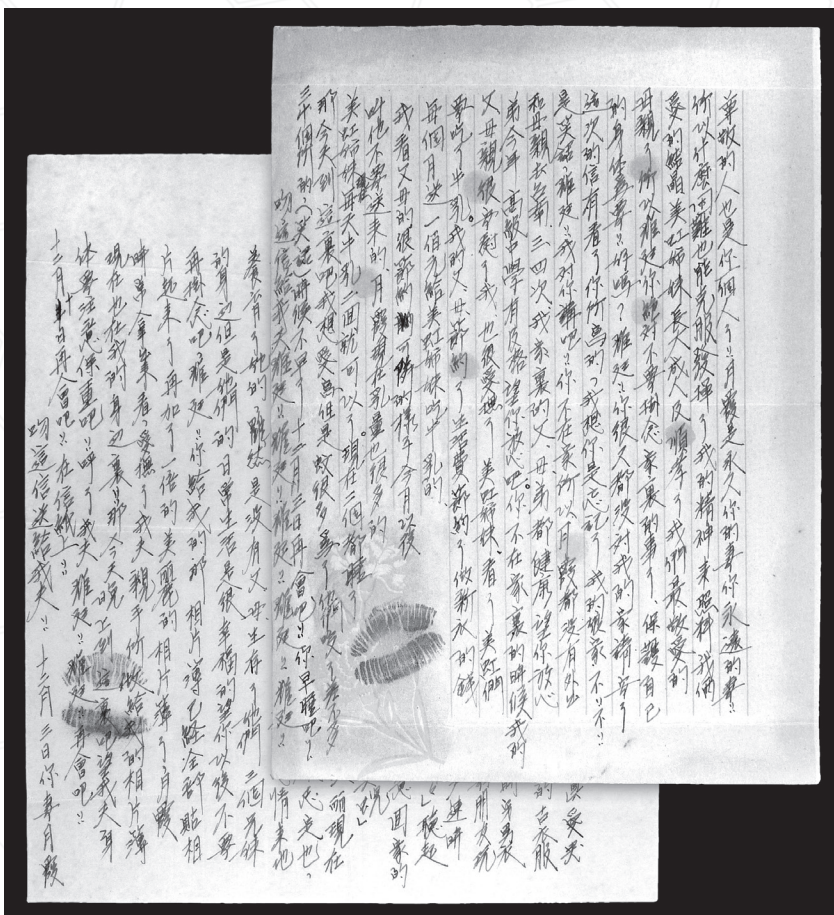 尊敬的人也是你個人了!!月霞是永久你的妻你永遠的妻!!
所以什麼困難也能克服發揮了我的精神来照料我倆
愛的結晶美虹姉妹長大成人反順孝了我們最敬愛的
母親了所以雅廷你絕対不要掛念家裏的事了、保護自己
的身体為要!!好嗎?雅廷!!你很久都沒対我的家請安了
這次的信有看了你所寫的?我想你是忘記了我的娘家不!不!!
是笑話雅廷!!我対你講吧!!你不在家所以月霞都沒有外出
和母親去台南三四次、我家裏的父、母弟都健康望你放心
弟今年高敏中學有及格望你放心吧。你不在家裏的時候我的
父母親很安慰了我、也很愛憐了美虹姉妹、看了美虹們
要吃了牛乳我的父、母節約了生活費節約了做新衣的錢
每個月送一佰元給美虹姉妹吃牛乳的
我看父母的很節約可憐的樣子今月以後
叫他不要送来的、月霞現在乳量也很多的
美虹姉妹每天牛乳二回就可以了。現在二個都睡了
那今天到這裏吧我想愛寫但是蚊很多、咬了差不多
三十個所的(笑話)時候不早了十二月三日再會吧!!你早睡吧!!
吻這信給我夫雅廷!!雅廷!!雅廷!!雅廷!!雅廷!!
的古衣服
聽起
回家的
現在
忘走也、
情来他
養育了他的、雖然是沒有父母生存了他們三個兄妹
的身边但是他們的日常生活是很幸福的望你以後不要
再掛念吧!雅廷!!你給我的那相片簿已経全部貼相
片起来了再加了一倍的美麗的相片簿了月霞
時常拿来看、愛撫了我夫親手所做給我的相片簿
現在也在我的身边裏!!那今天晚上到這裏吧望我夫身
体要注意保重吧!!呼了我夫雅廷!!雅廷!!再會吧!!
十二月十日再會吧!!在信紙上!!
吻這信送給我夫!!十二月三日你妻月霞